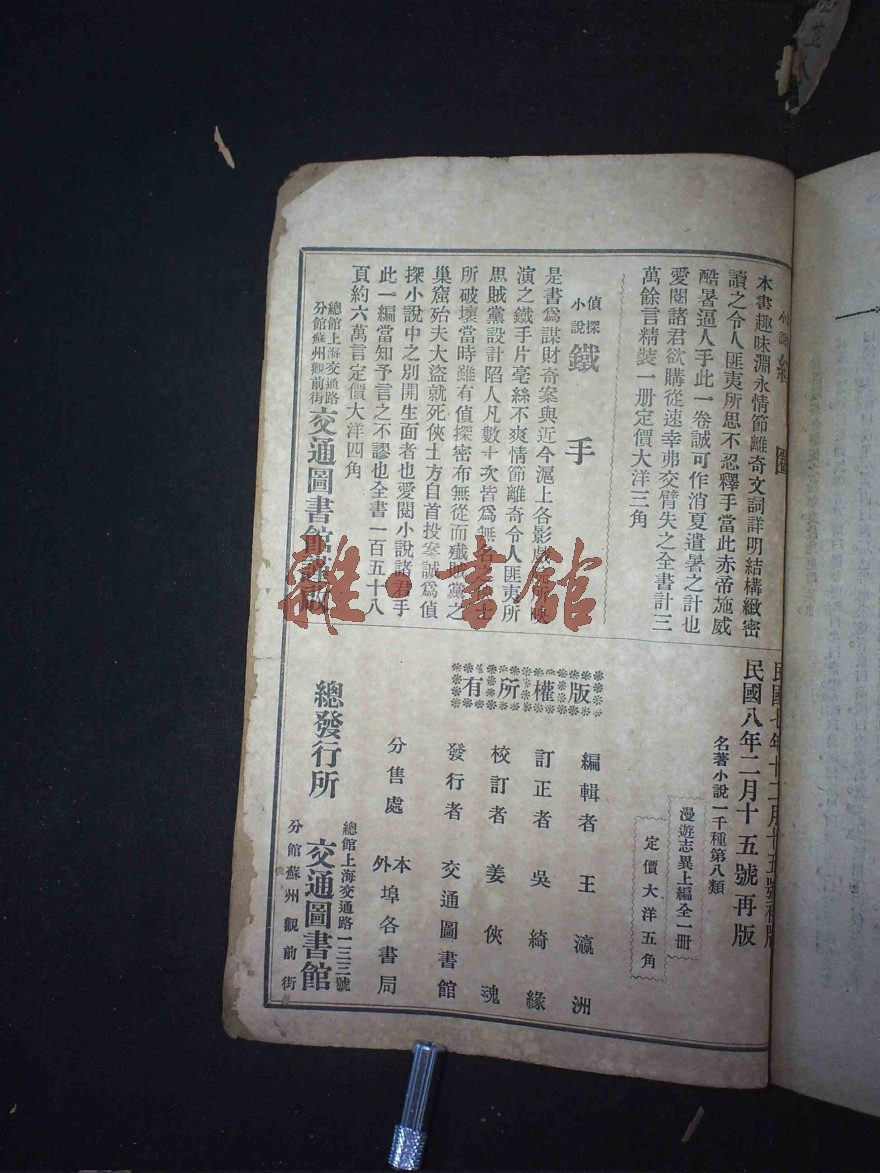 小說
本書趣味淵永情節離奇文詞詳明結構緻密
讀之令人匪夷所思不忍釋手當此赤帝施威
酷暑逼人手此一卷誠可作消夏遣暑之計也
愛閱諸君欲購從速幸弗交臂失之全書計三
萬餘言精裝一册定價大洋三角
偵探
小說
鐵手
是書爲謀財奇案與近今滬上各影戲院所映
演之鐵手片毫絲不爽情節離奇令人匪夷所
思賊黨設計陷人凡數十次皆爲無名之俠士
所破壞當時雖有偵探密布無從而殲賊黨之
巢窟殆夫大盜就死俠士方自首投案誠爲偵
探小說中之別開生面者也愛閱小說諸君手
此一編當知予言之不謬也全書一百五十八
頁約六萬言定價大洋四角
總館上海交通路
分館蘇州觀前街
交通圖書館謹啟
民國七年十二月十五號初版
民國八年二月十五號再版
名著小說一千種第八類
漫遊志異上編全一冊
定價大洋五角
版權所有
編輯者 王瀛洲
訂正者 吳綺緣
校訂者 姜俠魂
發行者 交通圖書館
分售處 本外埠各書局
總發行所
總館上海交通路一三三號
交通圖書館
分館蘇州觀前街
雜·書館